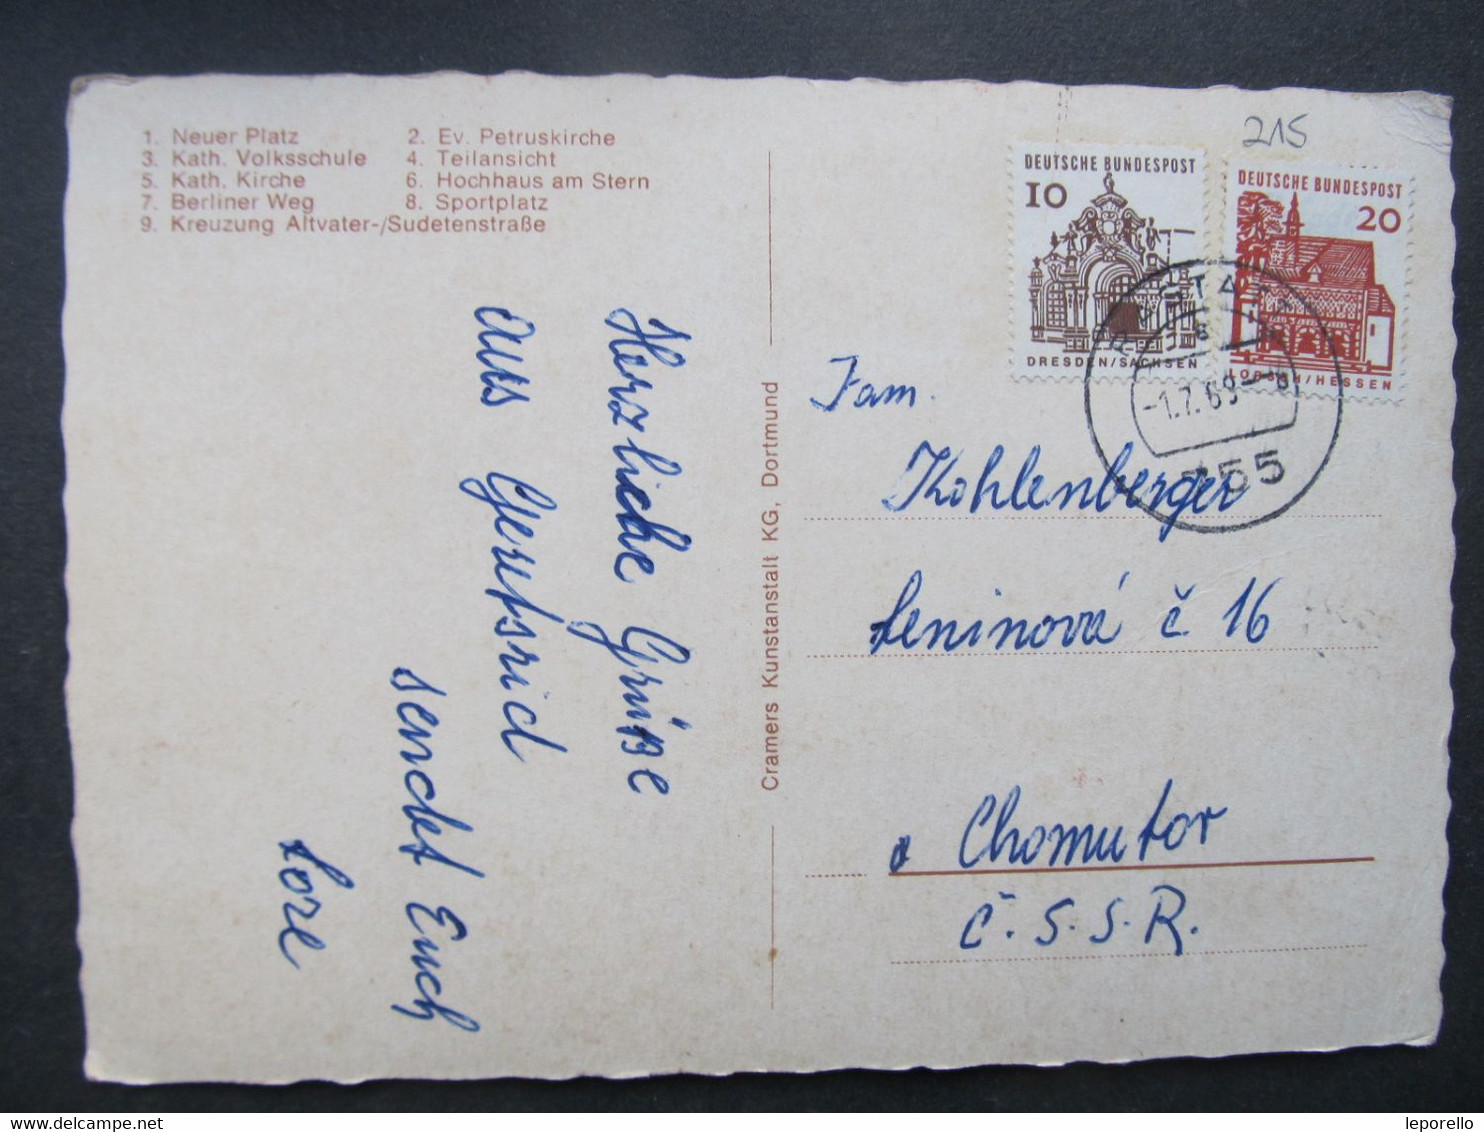 1. Neuer Platz 2. Ev. Petruskirche
3. Kath. Volksschule 4. Teilansicht
5. Kath. Kirche 6. Hochhaus am Stern
7. Berliner Weg 8. Sportplatz
9. Kreuzung Altvater-/Sudetenstraße
Herzliche Grüße
aus Geretsried
sendet Euch
Lore
Cramers Kunstanstalt KG, Dortmund
215
DEUTSCHE BUNDESPOST
10
DRESDEN/SACHSEN
DEUTSCHE BUNDESPOST
20
LORSCH/HESSEN
RASTATT
-1.7.69-8
755
Fam.
Kohlenberger
Leninová č 16
Chomutov
Č.S.S.R.
leporello